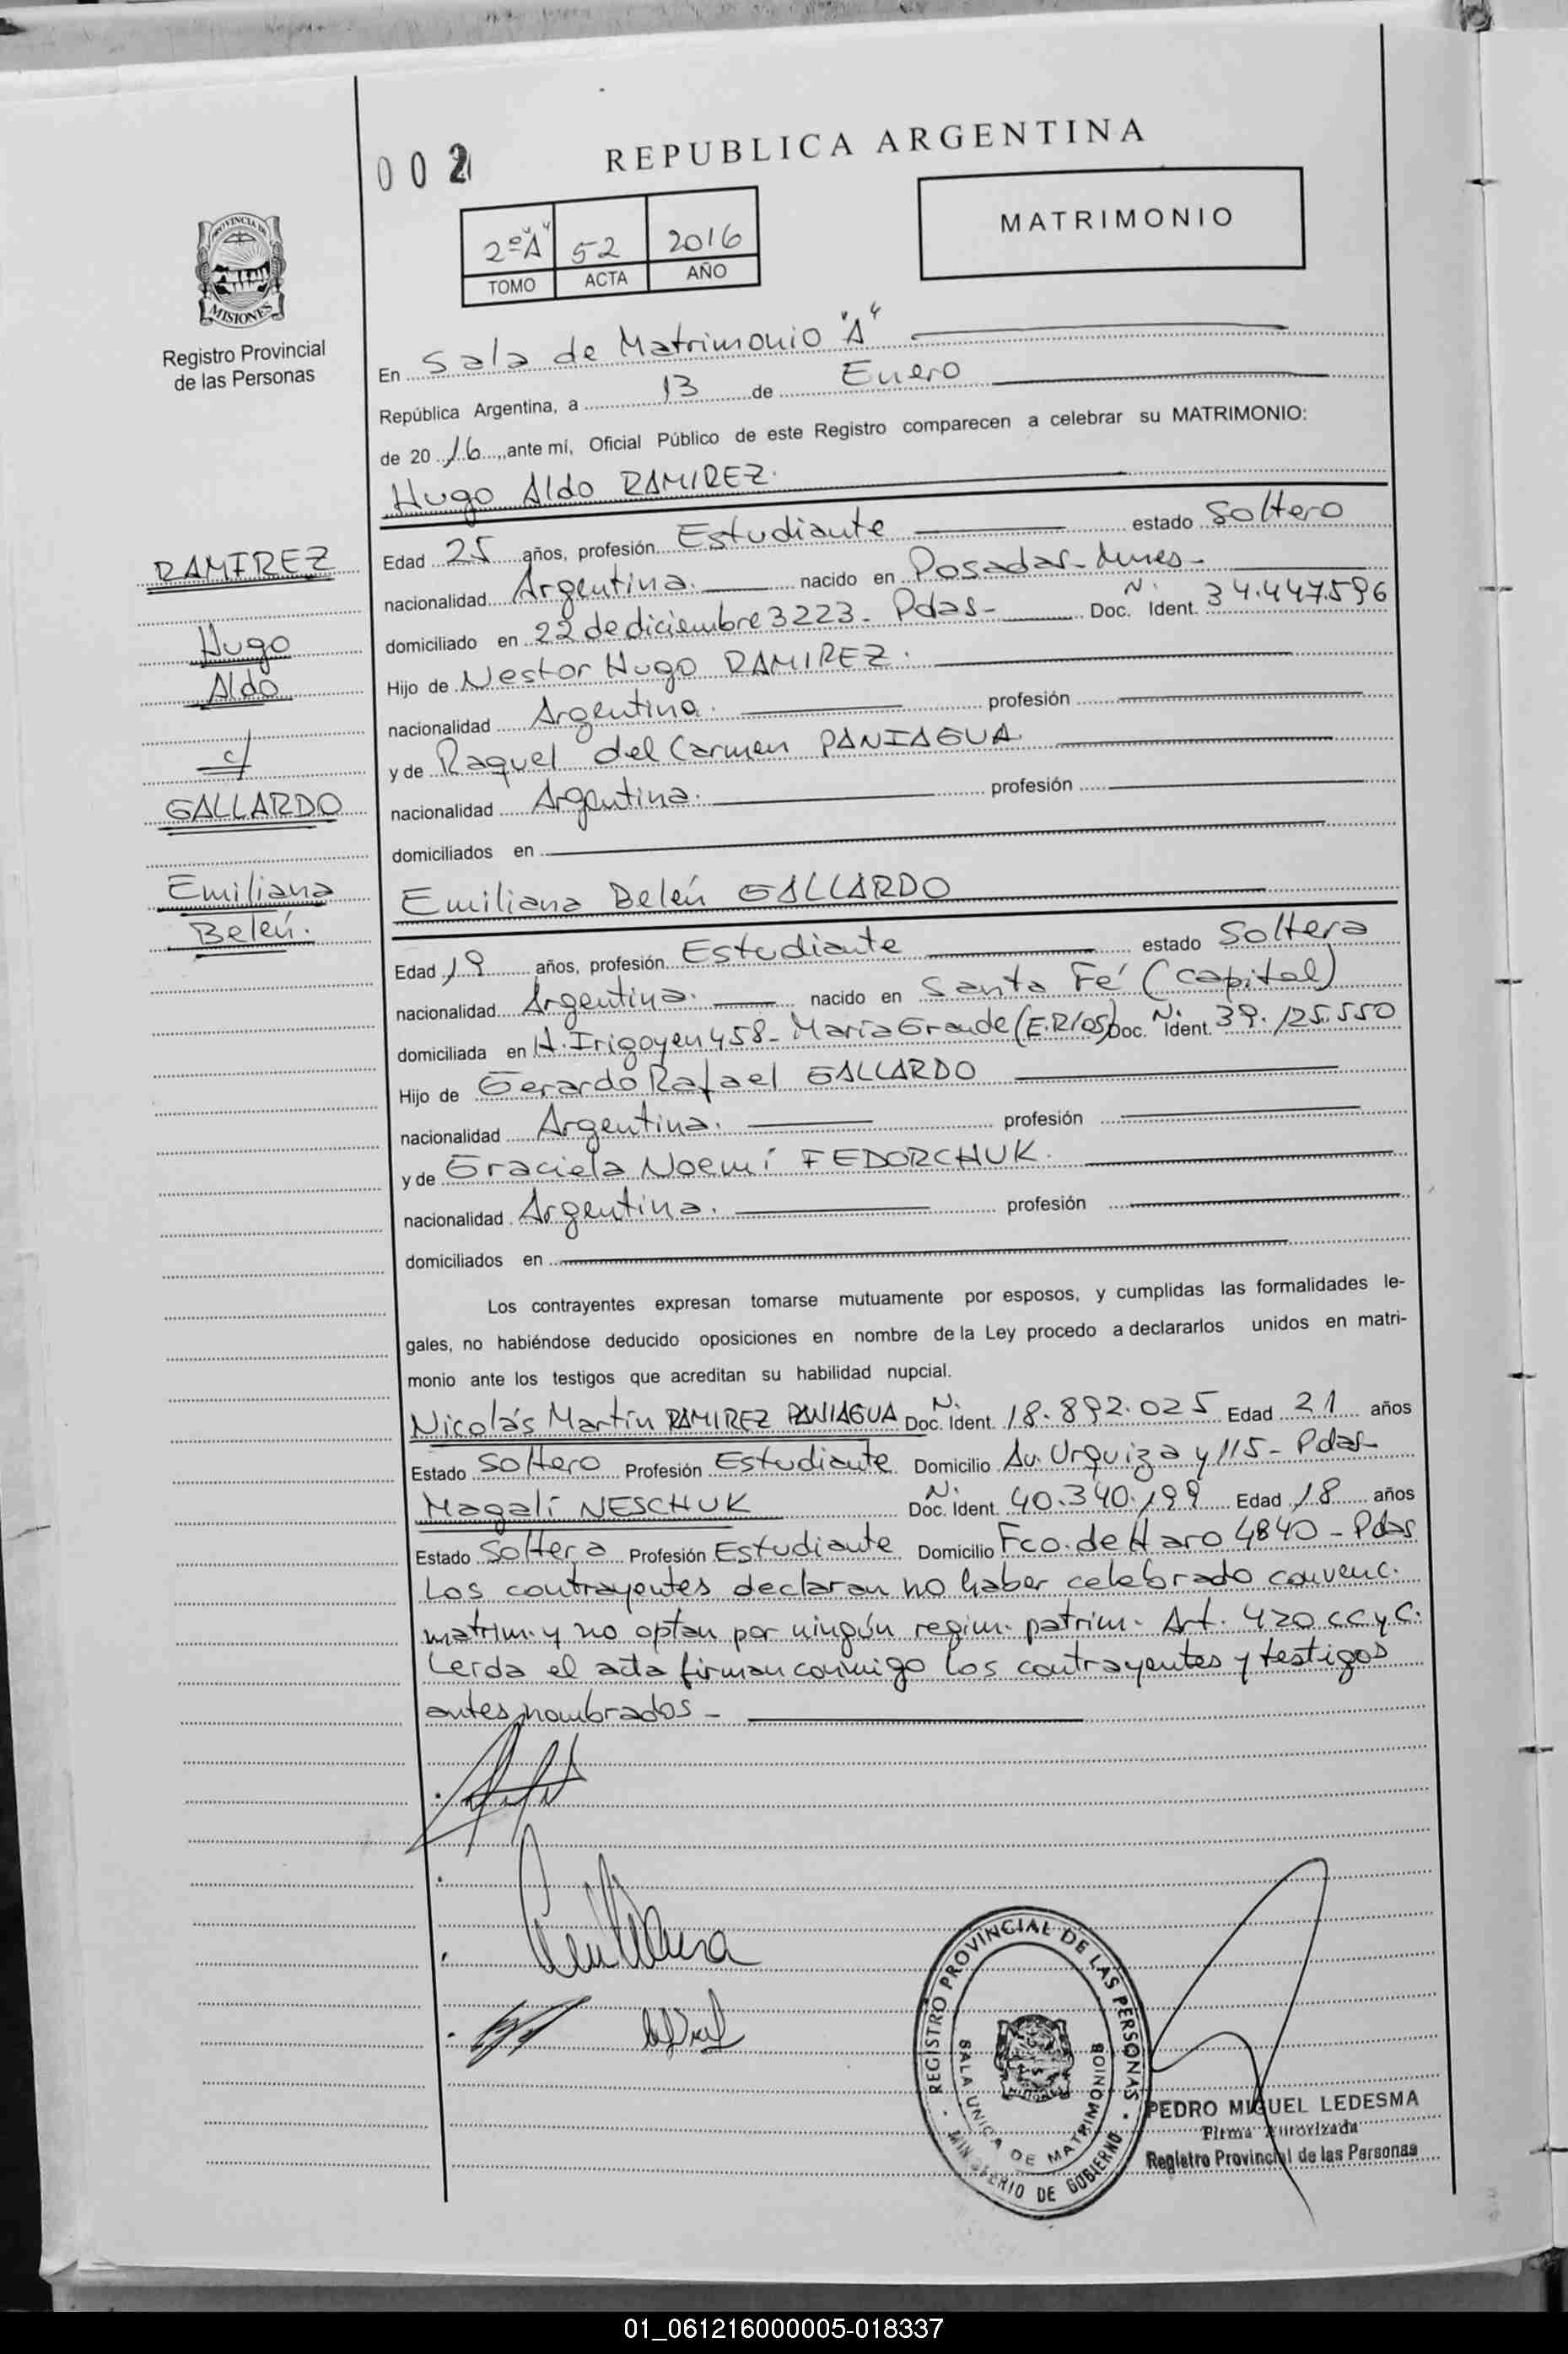 002
REPUBLICA ARGENTINA
MATRIMONIO
2º "A" 52 2016
TOMO ACTA AÑO
PROVINCIA DE
MISIONES
Registro Provincial
de las Personas
En Sala de Matrimonio "A"
República Argentina, a 13 de Enero
de 2016, ante mí, Oficial Público de este Registro comparecen a celebrar su MATRIMONIO:
Hugo Aldo RAMIREZ.
RAMIREZ
Hugo
Aldo
c/
GALLARDO
Emiliana
Belén.
Edad 25 años, profesión Estudiante estado Soltero
nacionalidad Argentina. nacido en Posadas-Mnes-
domiciliado en 22 de diciembre 3223- Pdas- Doc. Nº Ident. 34.447.596
Hijo de Nestor Hugo RAMIREZ.
nacionalidad Argentina. profesión
y de Raquel del Carmen PANIAGUA.
nacionalidad Argentina. profesión
domiciliados en
Emiliana Belén GALLARDO
Edad 19 años, profesión Estudiante estado Soltera
nacionalidad Argentina. nacido en Santa Fé (capital)
domiciliada en H. Irigoyen 458- María Grande (E.Ríos) Doc. Nº Ident. 39.125.550
Hijo de Gerardo Rafael GALLARDO
nacionalidad Argentina. profesión
y de Graciela Noemí FEDORCHUK.
nacionalidad Argentina. profesión
domiciliados en
Los contrayentes expresan tomarse mutuamente por esposos, y cumplidas las formalidades le-
gales, no habiéndose deducido oposiciones en nombre de la Ley procedo a declararlos unidos en matri-
monio ante los testigos que acreditan su habilidad nupcial.
Nicolás Martín RAMIREZ PANIAGUA Doc. Nº Ident. 18.892.025 Edad 21 años
Estado Soltero Profesión Estudiante Domicilio Av. Urquiza y 115- Pdas-
Magalí NESCHUK Doc. Nº Ident. 40.340.199 Edad 18 años
Estado Soltera Profesión Estudiante Domicilio Fco. de Haro 4840 - Pdas
Los contrayentes declaran no haber celebrado convenc.
matrim. y no optan por ningún regim. patrim. Art. 420 CC.y C.
Leída el acta firman conmigo los contrayentes y testigos
antes nombrados -
REGISTRO PROVINCIAL DE LAS PERSONAS
SALA UNICA DE MATRIMONIOS
MINISTERIO DE GOBIERNO
PEDRO MIGUEL LEDESMA
Firma Autorizada
Registro Provincial de las Personas
01_061216000005-018337